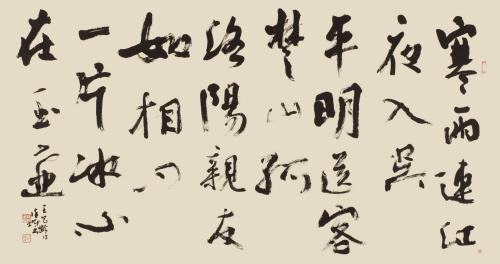 寒雨連江
夜入吳
平明送客
楚山孤
洛陽親友
如相问
一片冰心
在玉壺
王昌齡